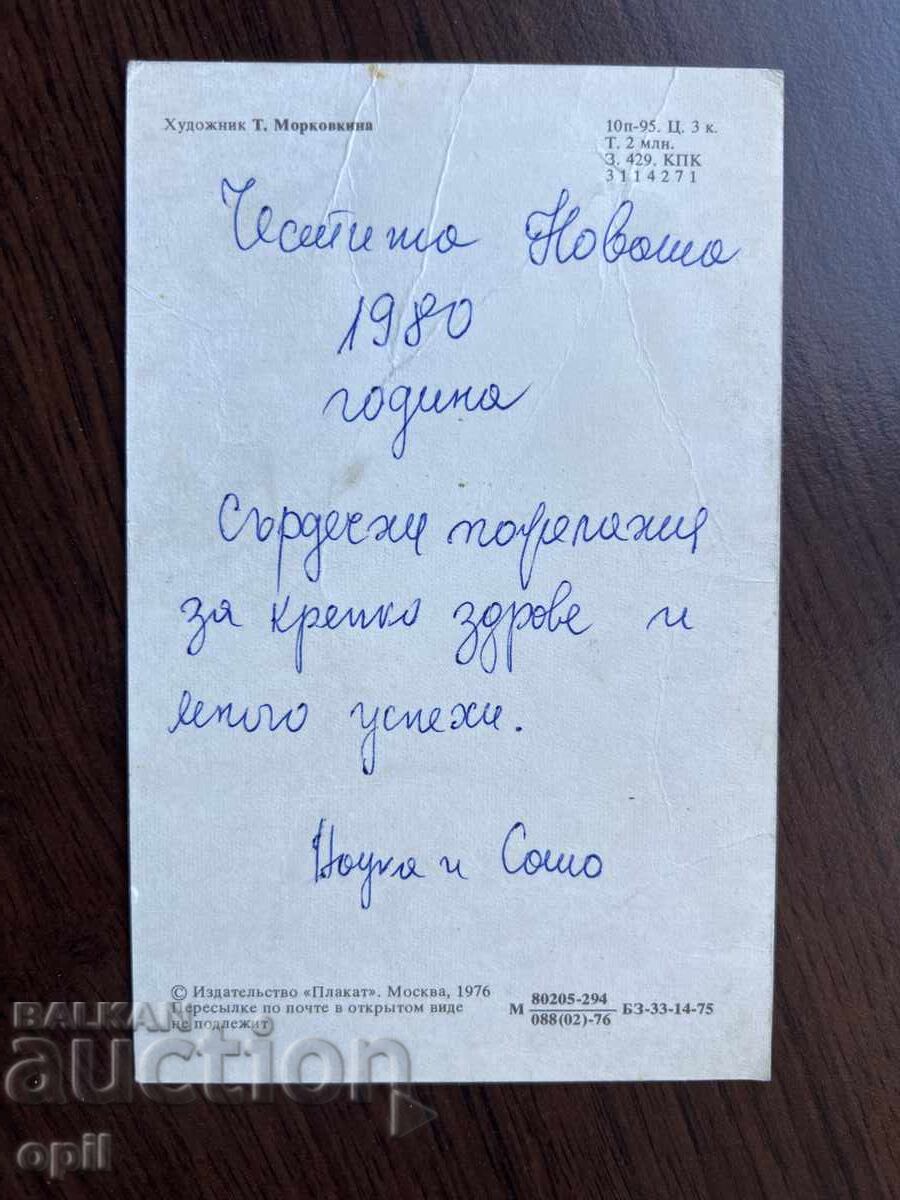 Художник Т. Морковкина
10п-95. Ц. 3 к.
Т. 2 млн.
З. 429. КПК
3114271
Честита Новата
1980
година
Сърдечни пожелания
за крепко здраве и
много успехи.
и Сашо
© Издательство «Плакат». Москва, 1976
Пересылке по почте в открытом виде
не подлежит
М 80205-294 БЗ-33-14-75
088(02)-76
BALKAN
auction
opil